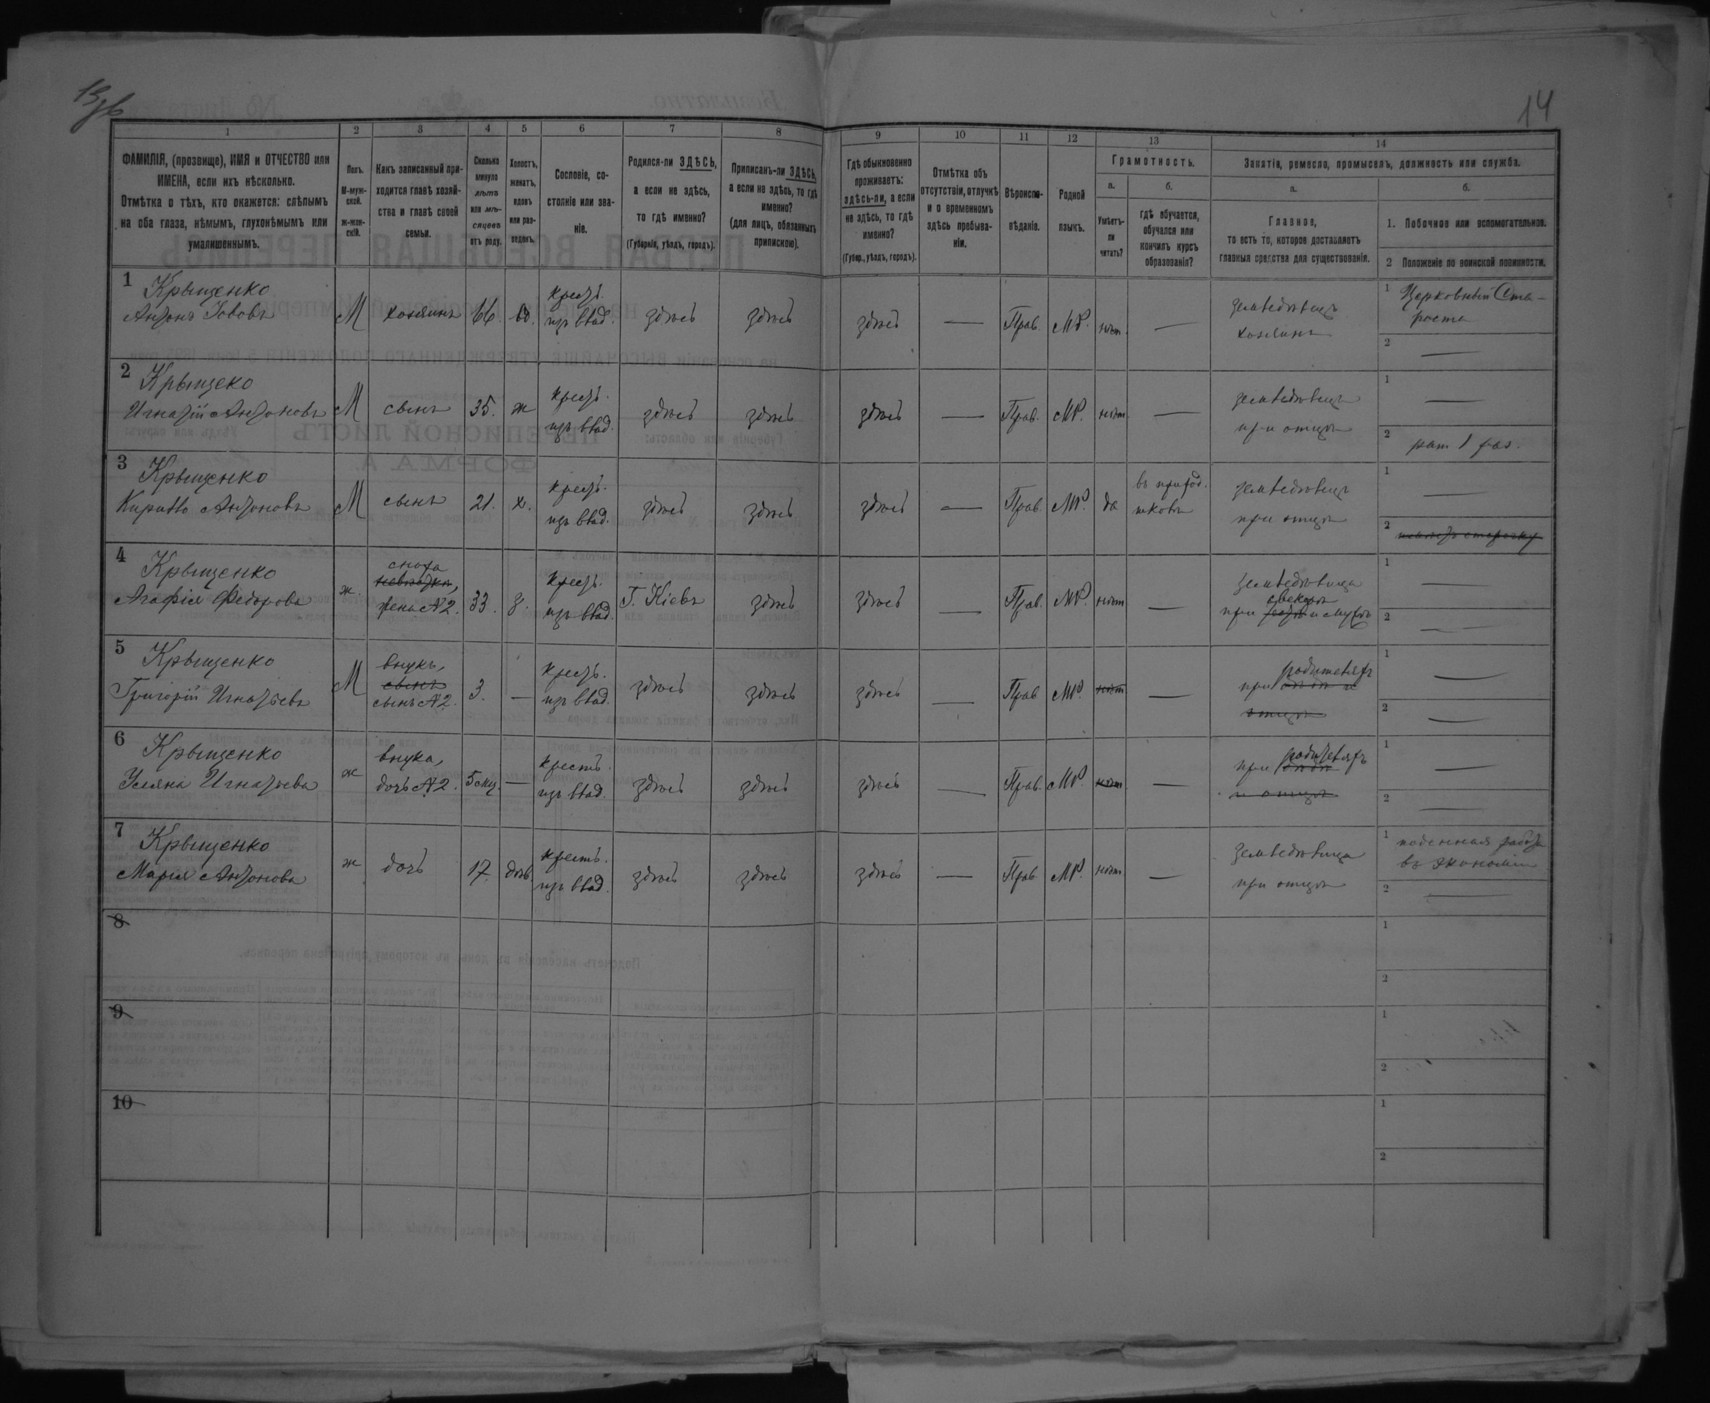 14
1 2 3 4 5 6 7 8 9 10 11 12 13 14
ФАМИЛІЯ, (прозвище), ИМЯ и ОТЧЕСТВО или ИМЕНА, если ихъ нѣсколько.
Отмѣтка о тѣхъ, кто окажется: слѣпымъ на оба глаза, нѣмымъ, глухонѣмымъ или умалишеннымъ.
Полъ.
М-мужской.
ж-женскій.
Какъ записанный приходится главѣ хозяйства и главѣ своей семьи.
Сколько минуло лѣтъ или мѣсяцевъ отъ роду.
Холостъ, женатъ, вдовъ или разведенъ.
Сословіе, состояніе или званіе.
Родился-ли ЗДѢСЬ, а если не здѣсь, то гдѣ именно?
(Губернія, уѣздъ, городъ).
Приписанъ-ли ЗДѢСЬ, а если не здѣсь, то гдѣ именно?
(для лицъ, обязанныхъ припискою).
Гдѣ обыкновенно проживаетъ: здѣсь-ли, а если не здѣсь, то гдѣ именно?
(Губер., уѣздъ, городъ).
Отмѣтка объ отсутствіи, отлучкѣ и о временномъ здѣсь пребываніи.
Вѣроисповѣданіе.
Родной языкъ.
Грамотность.
а.
Умѣетъ-ли читать?
б.
гдѣ обучается, обучался или кончилъ курсъ образованія?
Занятіе, ремесло, промыселъ, должность или служба.
а.
Главное,
то есть то, которое доставляетъ главныя средства для существованія.
б.
1. Побочное или вспомогательное.
2 Положеніе по воинской повинности.
1 Крыщенко
Антонъ Іововъ М хозяинъ 66. вд. крест. изъ влад. здѣсь здѣсь здѣсь — Прав. МР. нѣт. — земледѣлецъ хозяинъ 1 Церковный Староста 2 —
2 Крыщеко
Игнатій Антоновъ М сынъ 35. ж крест. изъ влад. здѣсь здѣсь здѣсь — Прав. МР. нѣт. — земледѣлецъ при отцѣ 1 — 2 рат 1 раз.
3 Крыщенко
Кирилло Антоновъ М сынъ 21. х. крест. изъ влад. здѣсь здѣсь здѣсь — Прав. МР. да земледѣлецъ при отцѣ 1 — 2
4 Крыщенко
Агафія Федорова ж. сноха жена №2. 33. з. крест. изъ влад. Г. Кіевъ здѣсь здѣсь — Прав. МР. нѣт — земледѣлица при свекрѣ и мужѣ 1 — 2 —
5 Крыщенко
Григорій Игнатьевъ М внукъ, сынъ сынъ №2. 3. — крест. изъ влад. здѣсь здѣсь здѣсь — Прав МР. нѣт — при родителяхъ отцѣ 1 — 2 —
6 Крыщенко
Уляна Игнатьева ж внука, дочь №2. 5 мц. — крест. изъ влад. здѣсь здѣсь здѣсь — Прав. МР. нѣт — при родителяхъ и отцѣ 1 — 2 —
7 Крыщенко
Марія Антонова ж дочь 17. дѣв крест. изъ влад. здѣсь здѣсь здѣсь — Прав МР. нѣт — земледѣлица при отцѣ 1 поденная работа въ экономіи 2 —
8 1 2
9 1 2
10 1 2